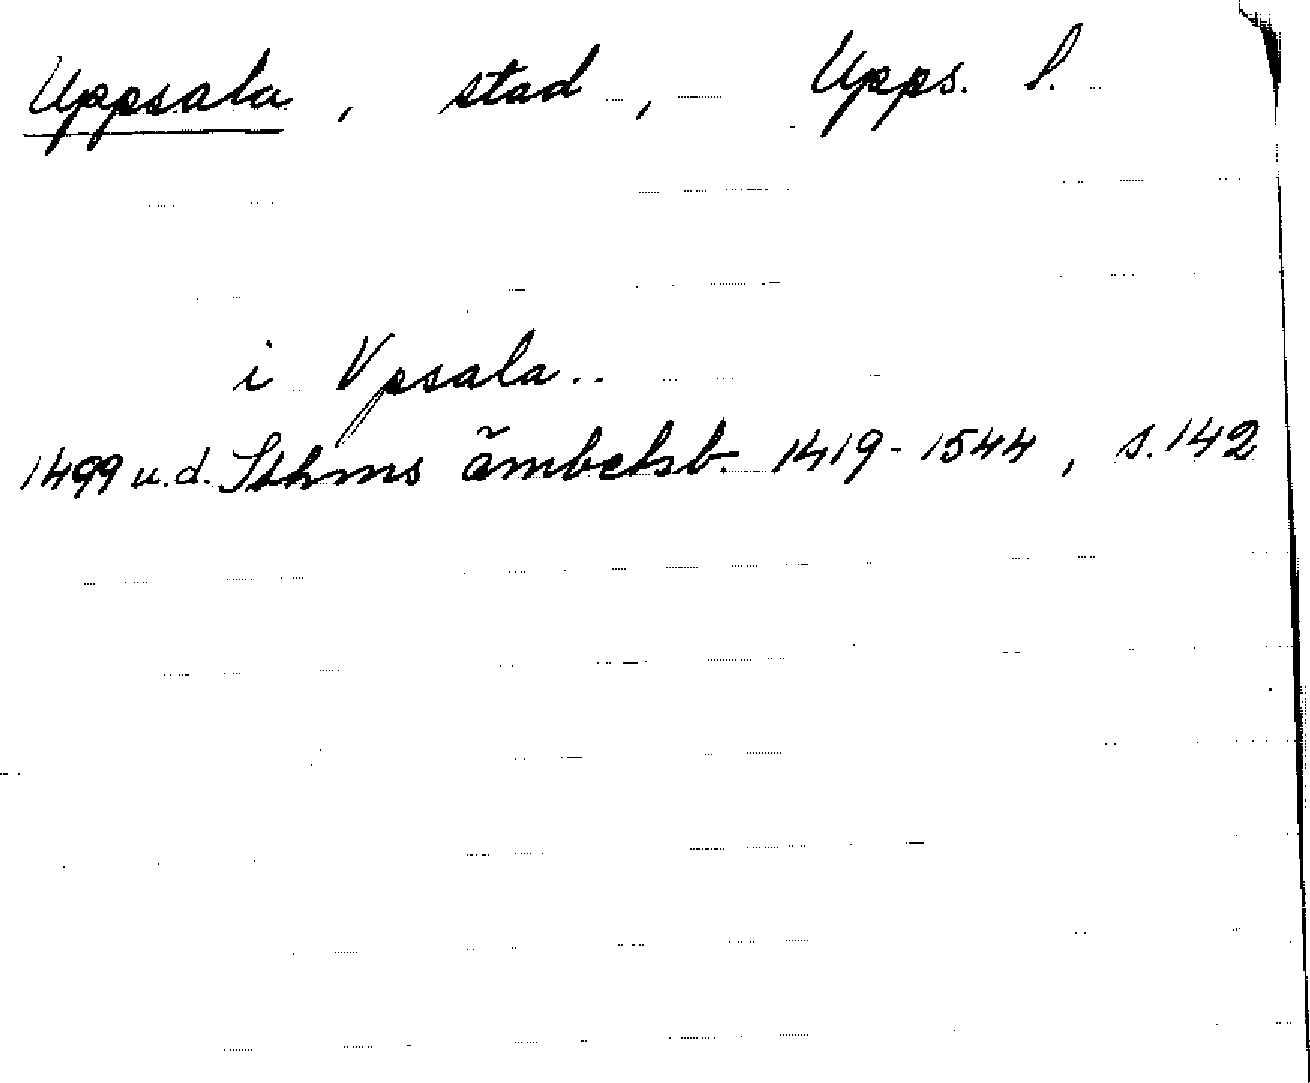 Uppsala, stad, Upps. l.
i Vpsala..
1499 u.d. Sthms ämbetsb. 1419-1544, s. 142